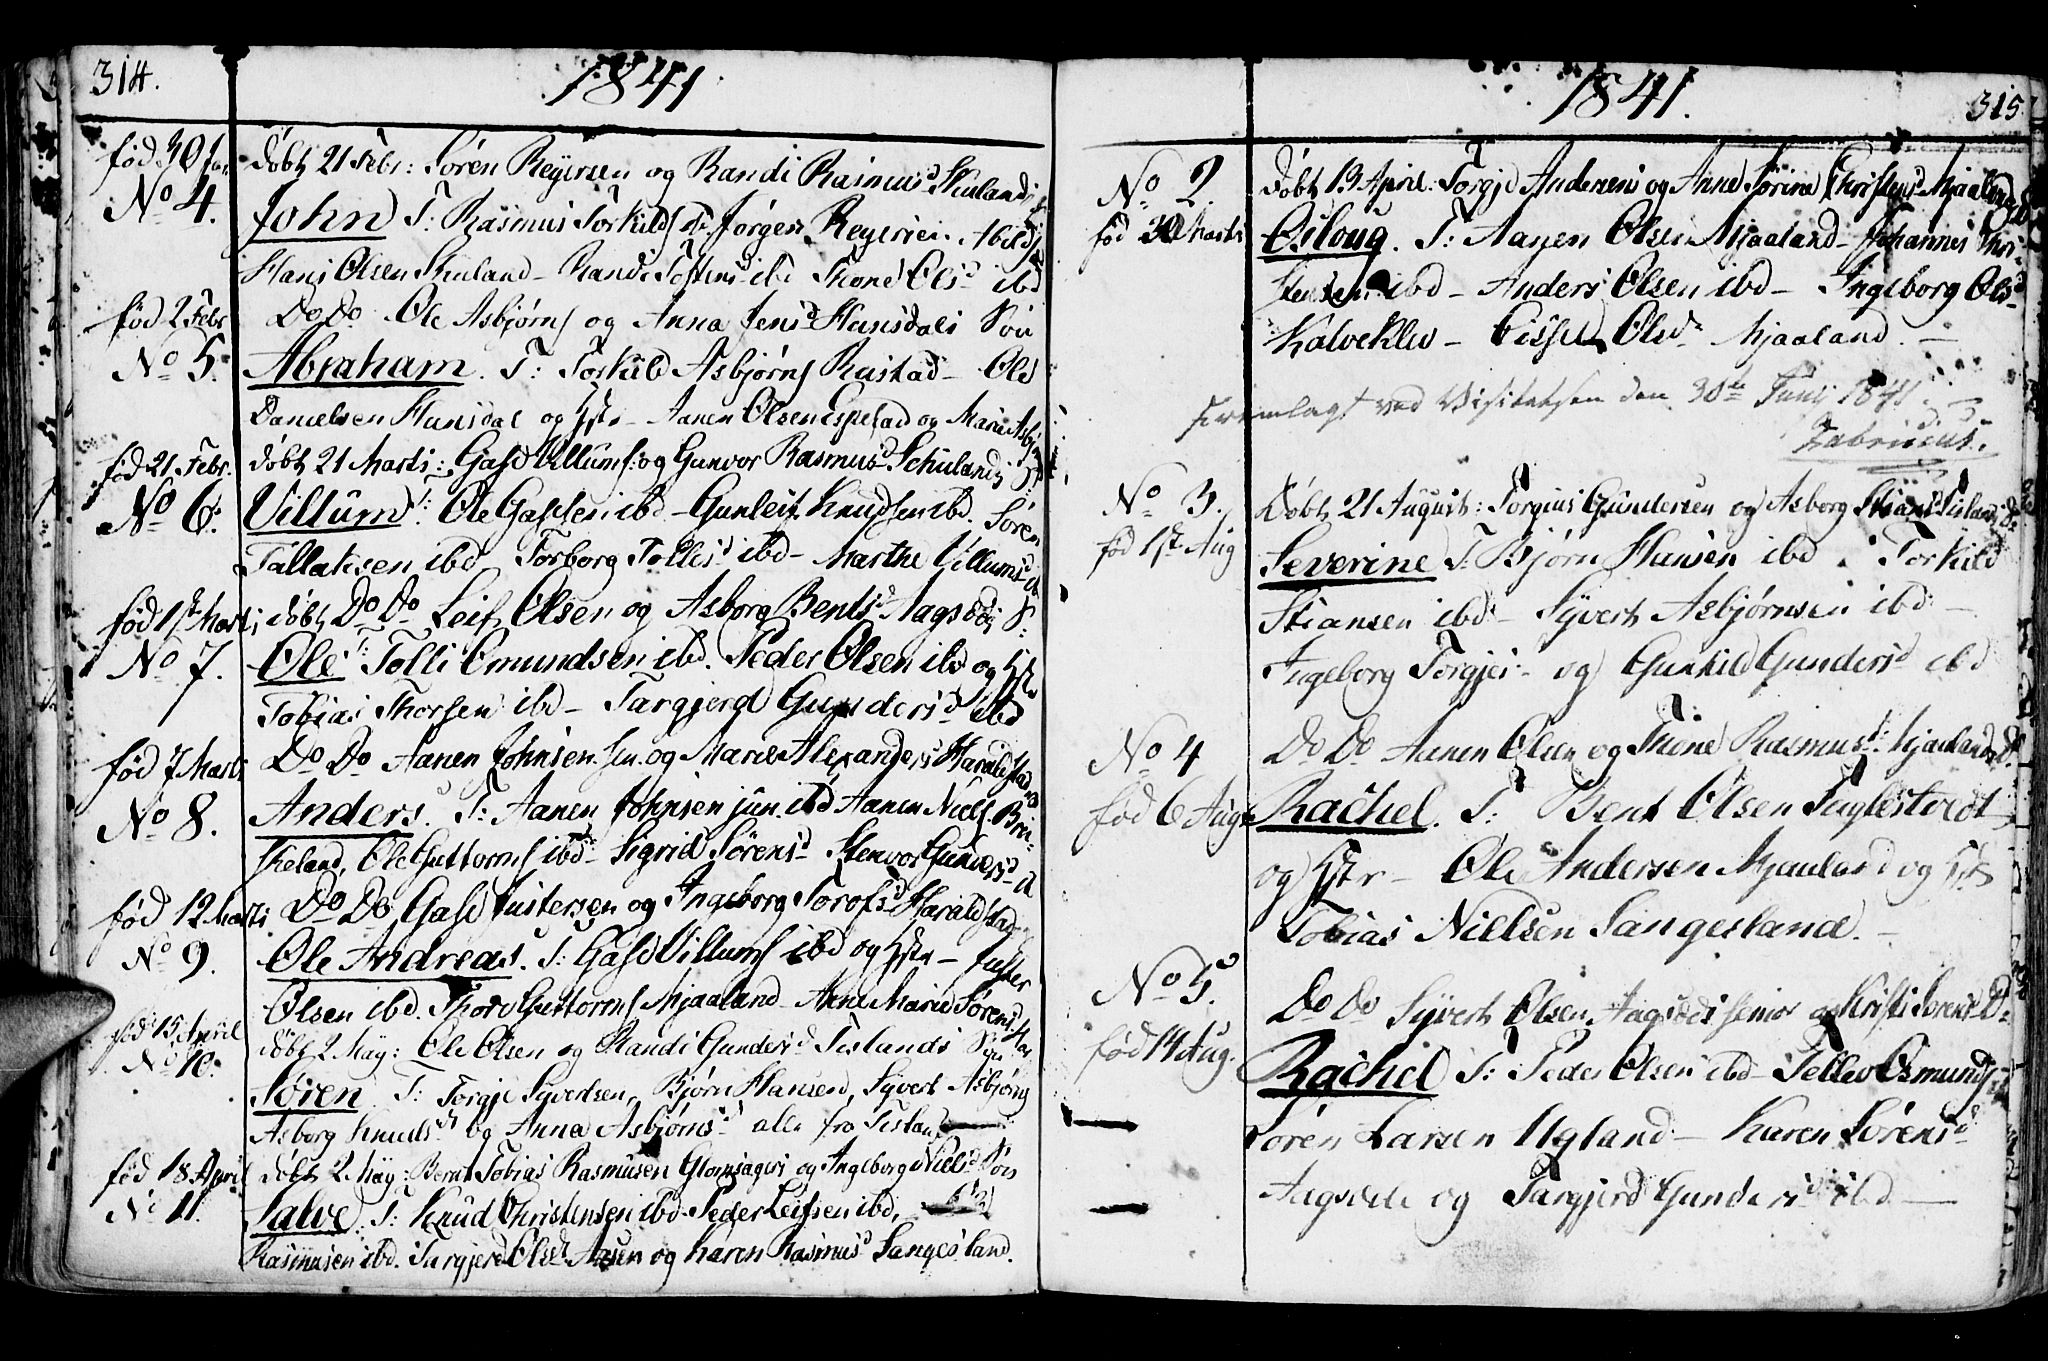 314.
1841
fød 30 Jan
No 4.
døbt 21 Febr: Sören Reyersen og Randi Rasmusd Skuland
John T: Rasmus Torkilds Jørgen Reyersen Abild
Hans Olsen Skuland - Randi ibd Thone Olsd ibd
fød 2 Febr
No 5.
Do Do Ole Asbjørns og Anna Jensd Hunsdals Sön
Abraham. T: Torkild Asbjørns Rustad - Ole
Danielsen Hunsdal og Hstr - Aanen Olsen og Marie
fød 21 Febr.
No 6.
døbt 21 Marti: Gasd Villums: og Gunvor Rasmusd Schulands
Villum T: Ole Gasdsen ibd - Gunleif Knudsen ibd. Sören
Tallaksen ibd Torborg Tollisd ibd - Marthe Villumsd
fød 1st Marti
No 7.
døbt Do Do Leif Olsen og Asborg Bentsd Aagsdeds S:
Ole T: Tolli Omundsen ibd. Peder Olsen ibd og Hstr
Tobias Thorsen ibd - Targjerd Gundersd ibd
fød 7 Marti
No 8.
Do Do Aanen Johnsen sen. og Maren Alexandersd Haraldstad
Anders. T: Aanen Johnsen jun. ibd Aanen Niels Bri-
keland, Ole Guttorms ibd - Sigrid Sörensd Stenvor Gundersd
fød 12 Marti
No 9.
Do Do Gasd Justersen og Ingeborg Torofsd Haraldstad
Ole Andreas. T: Gasd Villums ibd og Hstr - Juster
Olsen ibd. Thore Guttorms Mjaaland - Anne Marie Sörensd
fød 15 April
No 10.
døbt 2 Maÿ: Ole Olsen og Randi Gundersd Tislands Sön
Sören. T: Torgje Syvertsen, Bjørn Hansen, Syvert Asbjørns
Asborg Knudsd og Anna Asbjørnsd alle fra Tisland
fød 18 April
No 11.
døbt 2 Maÿ: Bernt Tobias Rasmusen Glomsagers og Ingeborg Nielsd Sön
Salve. T: Knud Christensen ibd. Peder Leifsen ibd,
Rasmusen ibd. Targjerd Olsd Aasen og Karen Rasmusd Sangesland.
1841.
315
No 2.
fød 30 Marts
døbt 13 April: Torgje Andersens og Anne Sörine Christensd Mjaalands
Osloug. T: Aanen Olsen Mjaaland - Johannes Chri-
stensen ibd - Anders Olsen ibd - Ingeborg Olsd
Kalveklev - Cissel Olsd Mjaaland. -
fremlagt ved Visitatsen den 30te Junij 1841.
Fabricius.
No 3.
fød 1st Aug
Döbt 21 August: Torgius Gundersen og Asborg Stiansd Tislands D.
Severine T: Bjørn Hansen ibd. Torkild
Stiansen ibd - Syvert Asbjørnsen ibd -
Ingeborg Torgjes - og Gunhild Gundersd ibd
No 4
fød 6 Aug
Do Do Aanen Olsen og Thone Rasmusd: Mjaalands D.
Rachel. T: Bent Olsen Fuglestvedt
og Hstr - Ole Andersen Mjaaland og Hstr
Tobias Nielsen Sangesland. -
No 5.
fød 14 Aug.
Do Do Syvert Olsen Aagsdeds senior og Kristi Sörensd D.
Rachel T: Peder Olsen ibd - Tellev Osmunds
Sören Larsen Ugland - Karen Sörensd
Aagsdele og Targjerd Gundersd ibd -